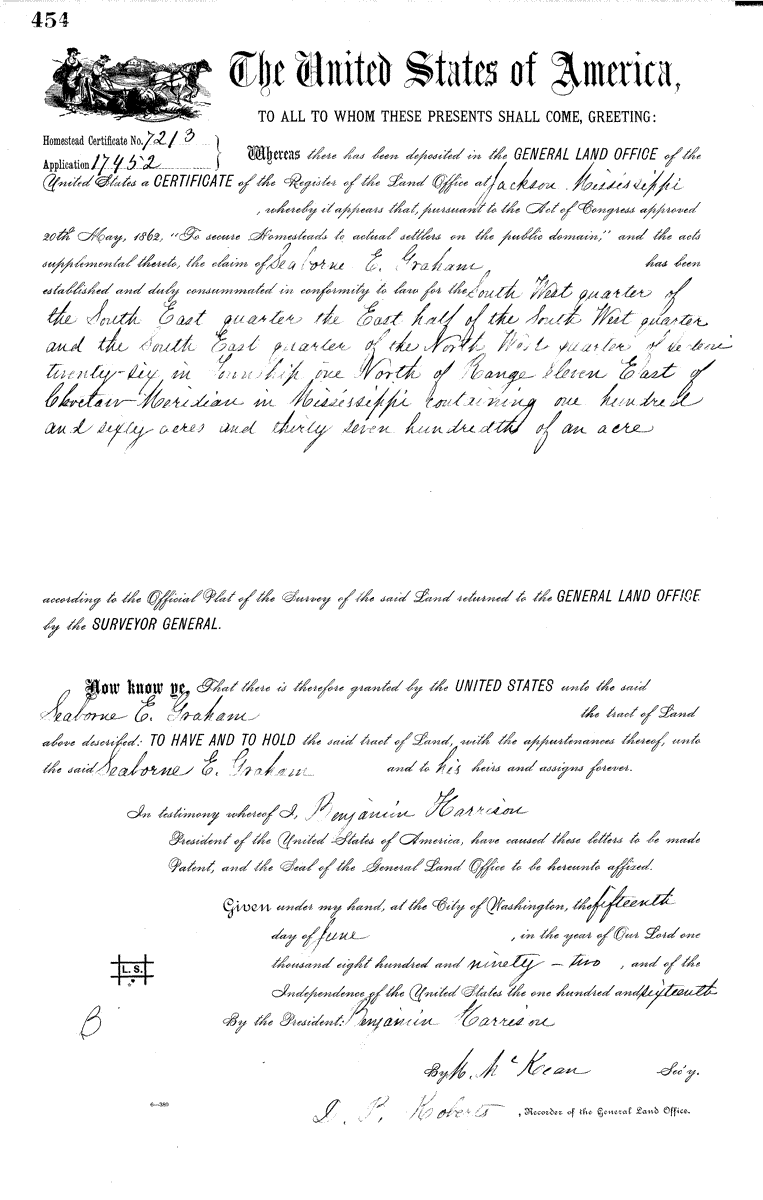 454
The United States of America,
TO ALL TO WHOM THESE PRESENTS SHALL COME, GREETING:
Homestead Certificate No. 7213
Application 17452
Whereas there has been deposited in the GENERAL LAND OFFICE of the
United States a CERTIFICATE of the Register of the Land Office at Jackson Mississippi
, whereby it appears that, pursuant to the Act of Congress approved
20th May, 1862, "To secure Homesteads to actual settlers on the public domain," and the acts
supplemental thereto, the claim of Seaborne E. Graham has been
established and duly consummated in conformity to law for the South West quarter of
the South East quarter the East half of the South West quarter
and the South East quarter of the North West quarter of Section
twenty-six in Township one North of Range eleven East of
Choctaw Meridian in Mississippi containing one hundred
and sixty acres and thirty seven hundredths of an acre
according to the Official Plat of the Survey of the said Land returned to the GENERAL LAND OFFICE
by the SURVEYOR GENERAL.
Now know ye, That there is therefore granted by the UNITED STATES unto the said
Seaborne E. Graham the tract of Land
above described: TO HAVE AND TO HOLD the said tract of Land, with the appurtenances thereof, unto
the said Seaborne E. Graham and to his heirs and assigns forever.
In testimony whereof I, Benjamin Harrison
President of the United States of America, have caused these letters to be made
Patent, and the Seal of the General Land Office to be hereunto affixed.
Given under my hand, at the City of Washington, the fifteenth
day of June , in the year of Our Lord one
thousand eight hundred and ninety-two , and of the
Independence of the United States the one hundred and sixteenth
L. S.
B By the President: Benjamin Harrison
By M. McKean Sec'y.
6—380
D. P. Roberts , Recorder of the General Land Office.